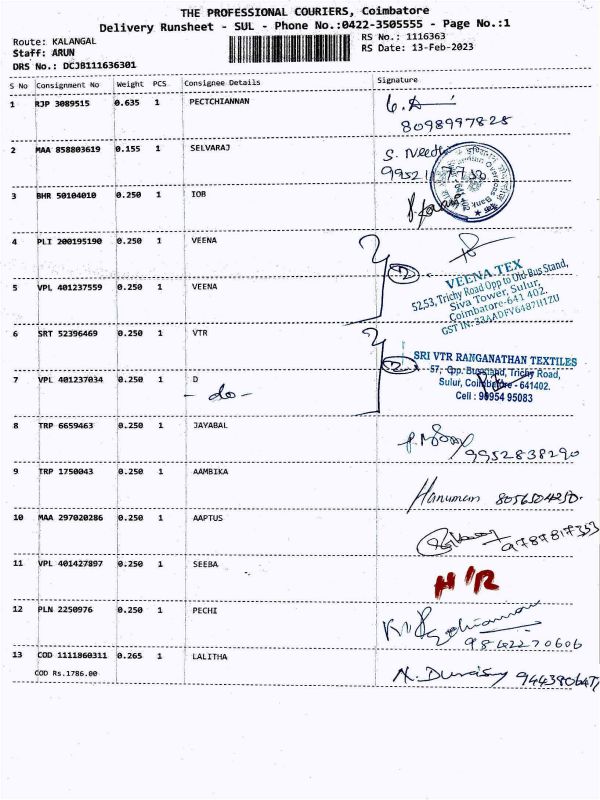 THE PROFESSIONAL COURIERS, Coimbatore
Delivery Runsheet - SUL - Phone No.:0422-3505555 - Page No.:1
Route: KALANGAL
RS No.: 1116363
Staff: ARUN
RS Date: 13-Feb-2023
DRS No.: DCJB111636301
S No Consignment No Weight PCS Consignee Details Signature
1 RJP 3089515 0.635 1 PECTCHIANNAN
8098997828
2 MAA 858803619 0.155 1 SELVARAJ S. Neethi
3 BHR 50104010 0.250 1 IOB
4 PLI 200195190 0.250 1 VEENA
5 VPL 401237559 0.250 1 VEENA
2
VEENA TEX
52,53, Trichy Road Opp to Old Bus Stand,
Siva Tower, Sulur,
Coimbatore-641 402.
GST IN:
6 SRT 52396469 0.250 1 VTR
2
SRI VTR RANGANATHAN TEXTILES
57, Opp. Busstand, Trichy Road,
Sulur, Coimbatore - 641402.
Cell : 98954 95083
7 VPL 401237034 0.250 1 D
- do -
8 TRP 6659463 0.250 1 JAYABAL
9952838290
9 TRP 1750043 0.250 1 AAMBIKA Hanuman 8056504250.
10 MAA 297020286 0.250 1 AAPTUS 9787817353
11 VPL 401427897 0.250 1 SEEBA H/R
12 PLN 2250976 0.250 1 PECHI
9842270606
13 COD 1111860311 0.265 1 LALITHA
COD Rs.1786.00